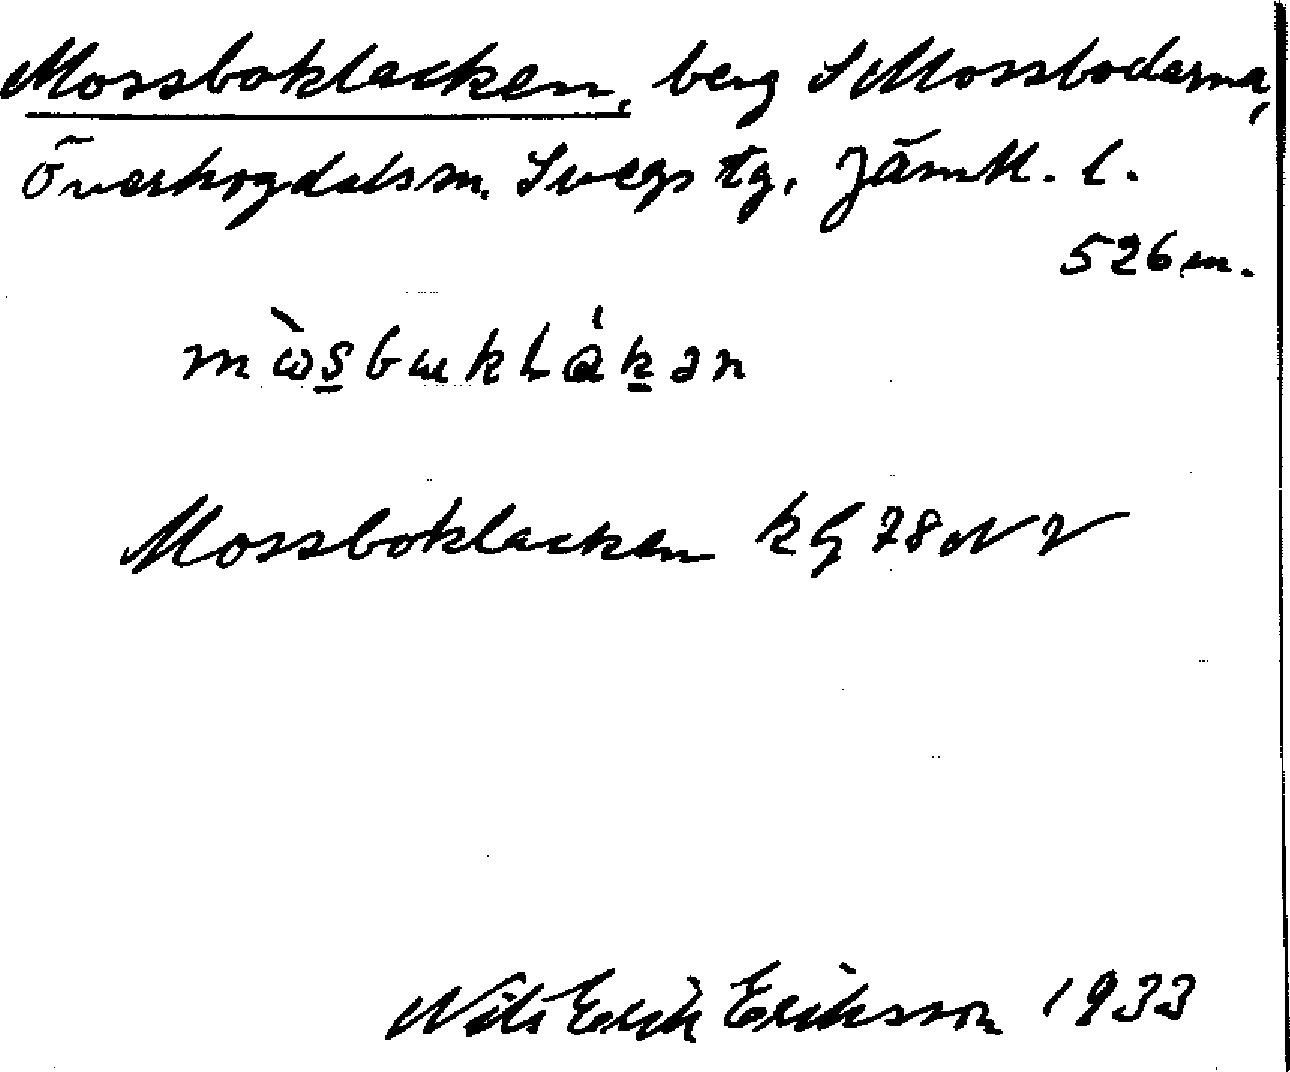 Mossboklacken, berg S Mossbodarna,
Överhogdals sn. Svegs tg. Jämtl. l.
526 m.
mὼs̲bɯkLák̲ən
Mossboklacken kG 78 NV
Nils Erik Eriksson 1933